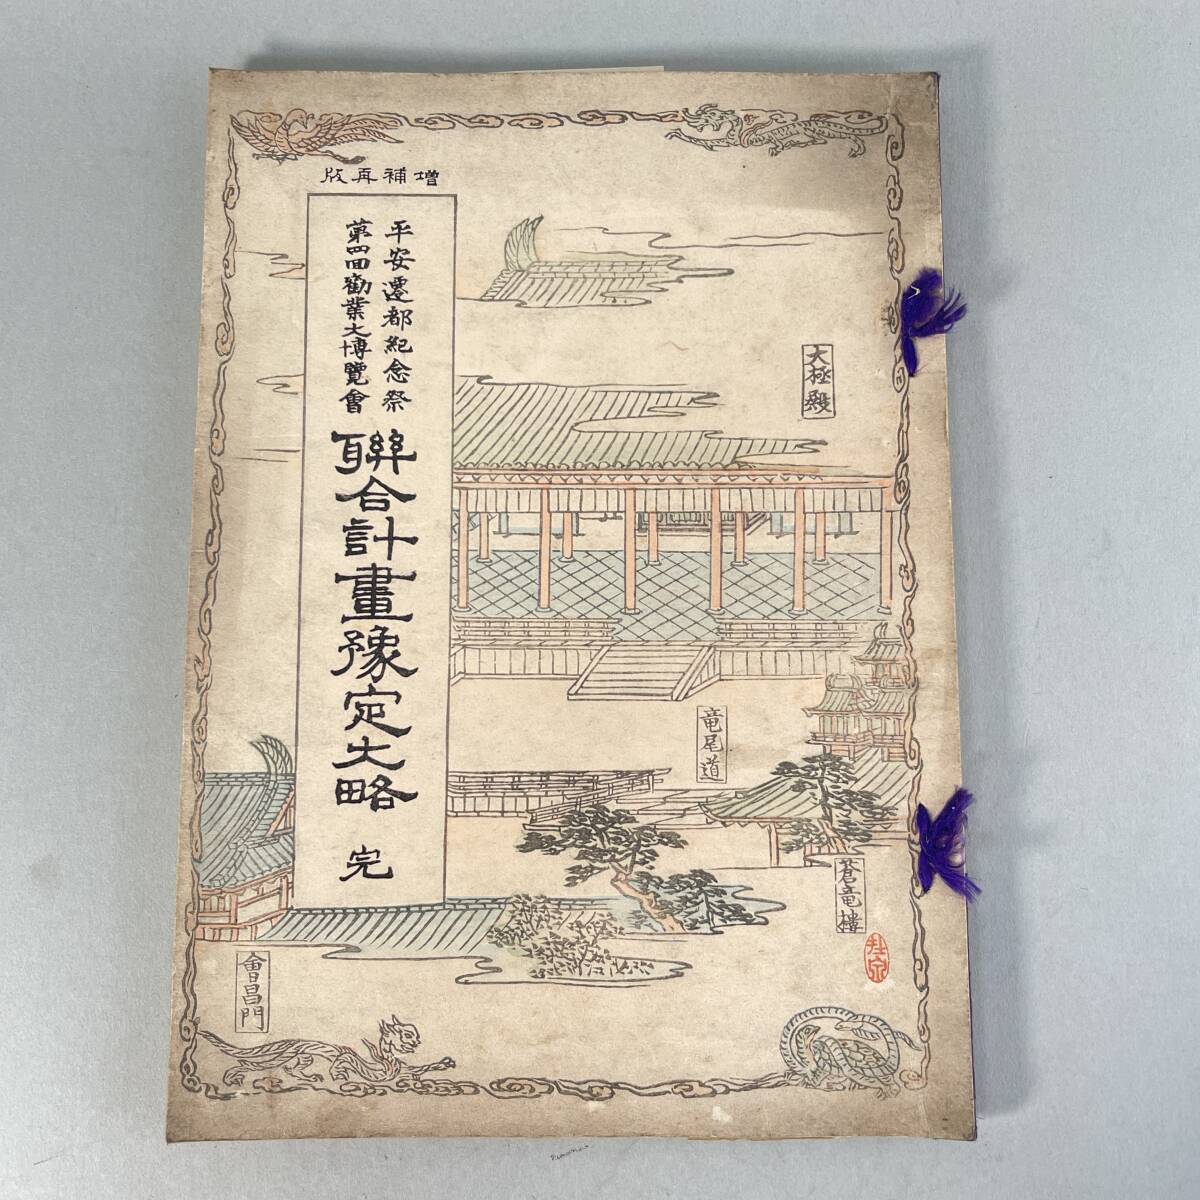 増補再版
平安遷都紀念祭
第四回勧業大博覧會
聯合計畫豫定大略 完
大極殿
竜尾道
蒼竜樓
會昌門